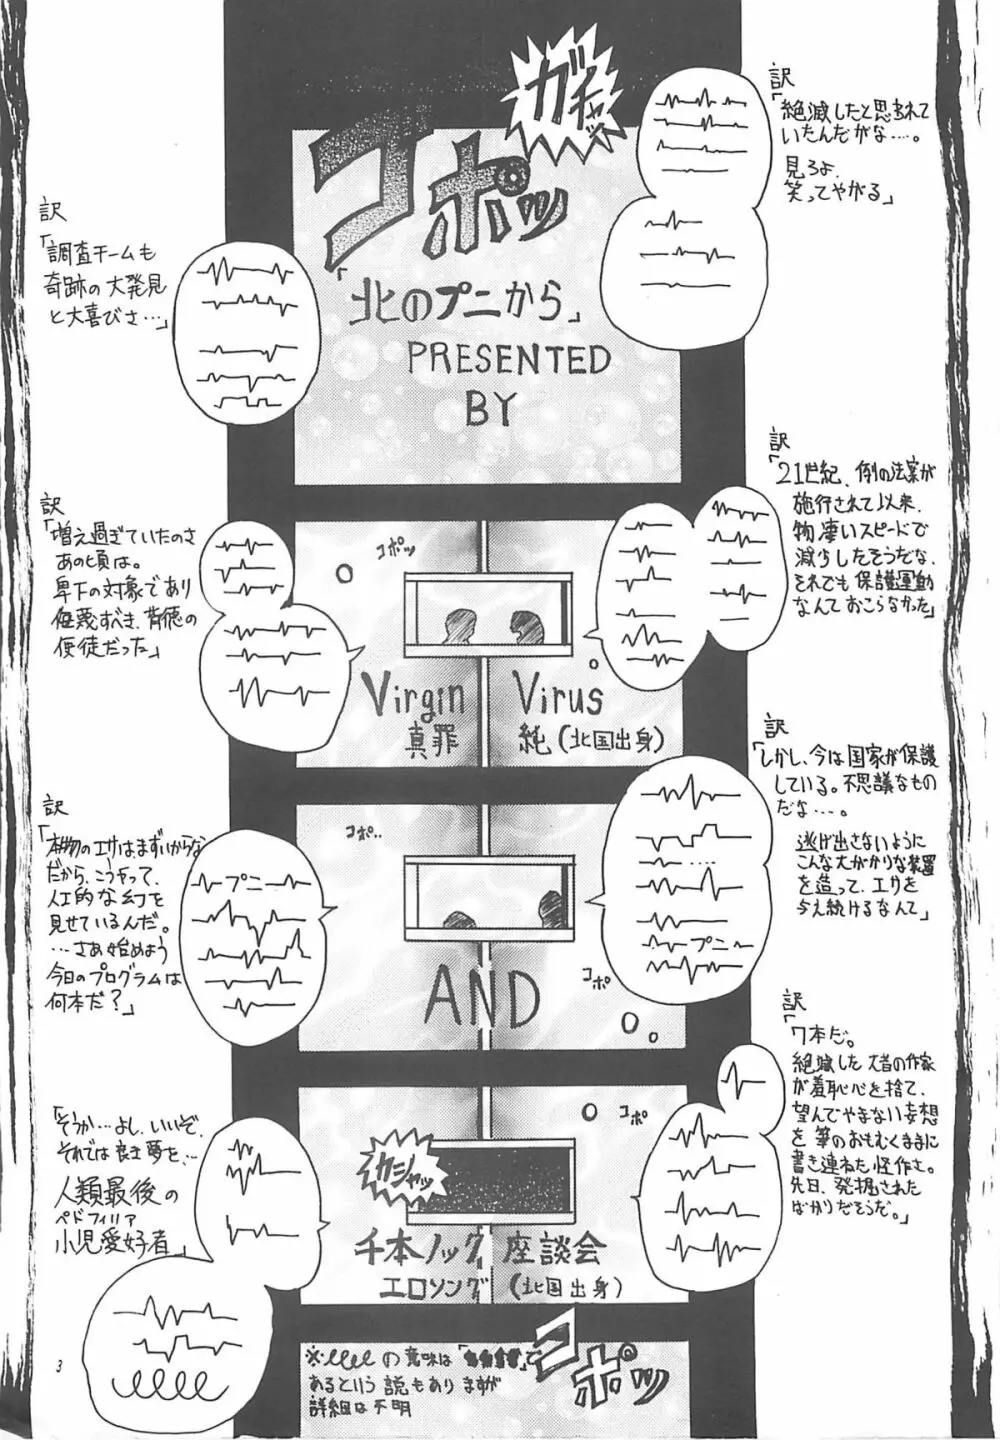 ガチャッ
コポッ
訳
「絶滅したと思われて
いたんだがな…。
見ろよ
笑ってやがる」
訳
「調査チームも
奇跡の大発見
と大喜びさ…」
「北のプニから」
PRESENTED
BY
訳
「21世紀、例の法案が
施行されて以来、
物凄いスピードで
減少したそうだな、
それでも保護運動
なんておこらなかった」
訳
「増え過ぎていたのさ
あの頃は。
卑下の対象であり
侮蔑すべき、背徳の
使徒だった」
コポッ
Virgin Virus
真罪 純(北国出身)
訳
「しかし、今は国家が保護
している。不思議なもの
だな…。
逃げ出さないように
こんな大がかりな装置
を造って、エサを
与え続けるなんて」
プニ
訳
「本物のエサはまずいからな
だから、こうやって、
人工的な幻を
見せているんだ。
…さあ始めよう
今日のプログラムは
何本だ?」
プニ
コポ..
コポ
AND
訳
「7本だ。
絶滅した大昔の作家
が羞恥心を捨て、
望んでやまない妄想
を筆のおもむくままに
書き連ねた怪作さ。
先日、発掘された
ばかりだそうだ。」
「そうか…よし、いいぞ、
それでは良き夢を、…
人類最後の
ペドフィリア
小児愛好者」
コポ
カシャッ
千本ノック 座談会
エロソング (北国出身)
※ の意味は「
あるという説もありますが
詳細は不明
コポッ
3